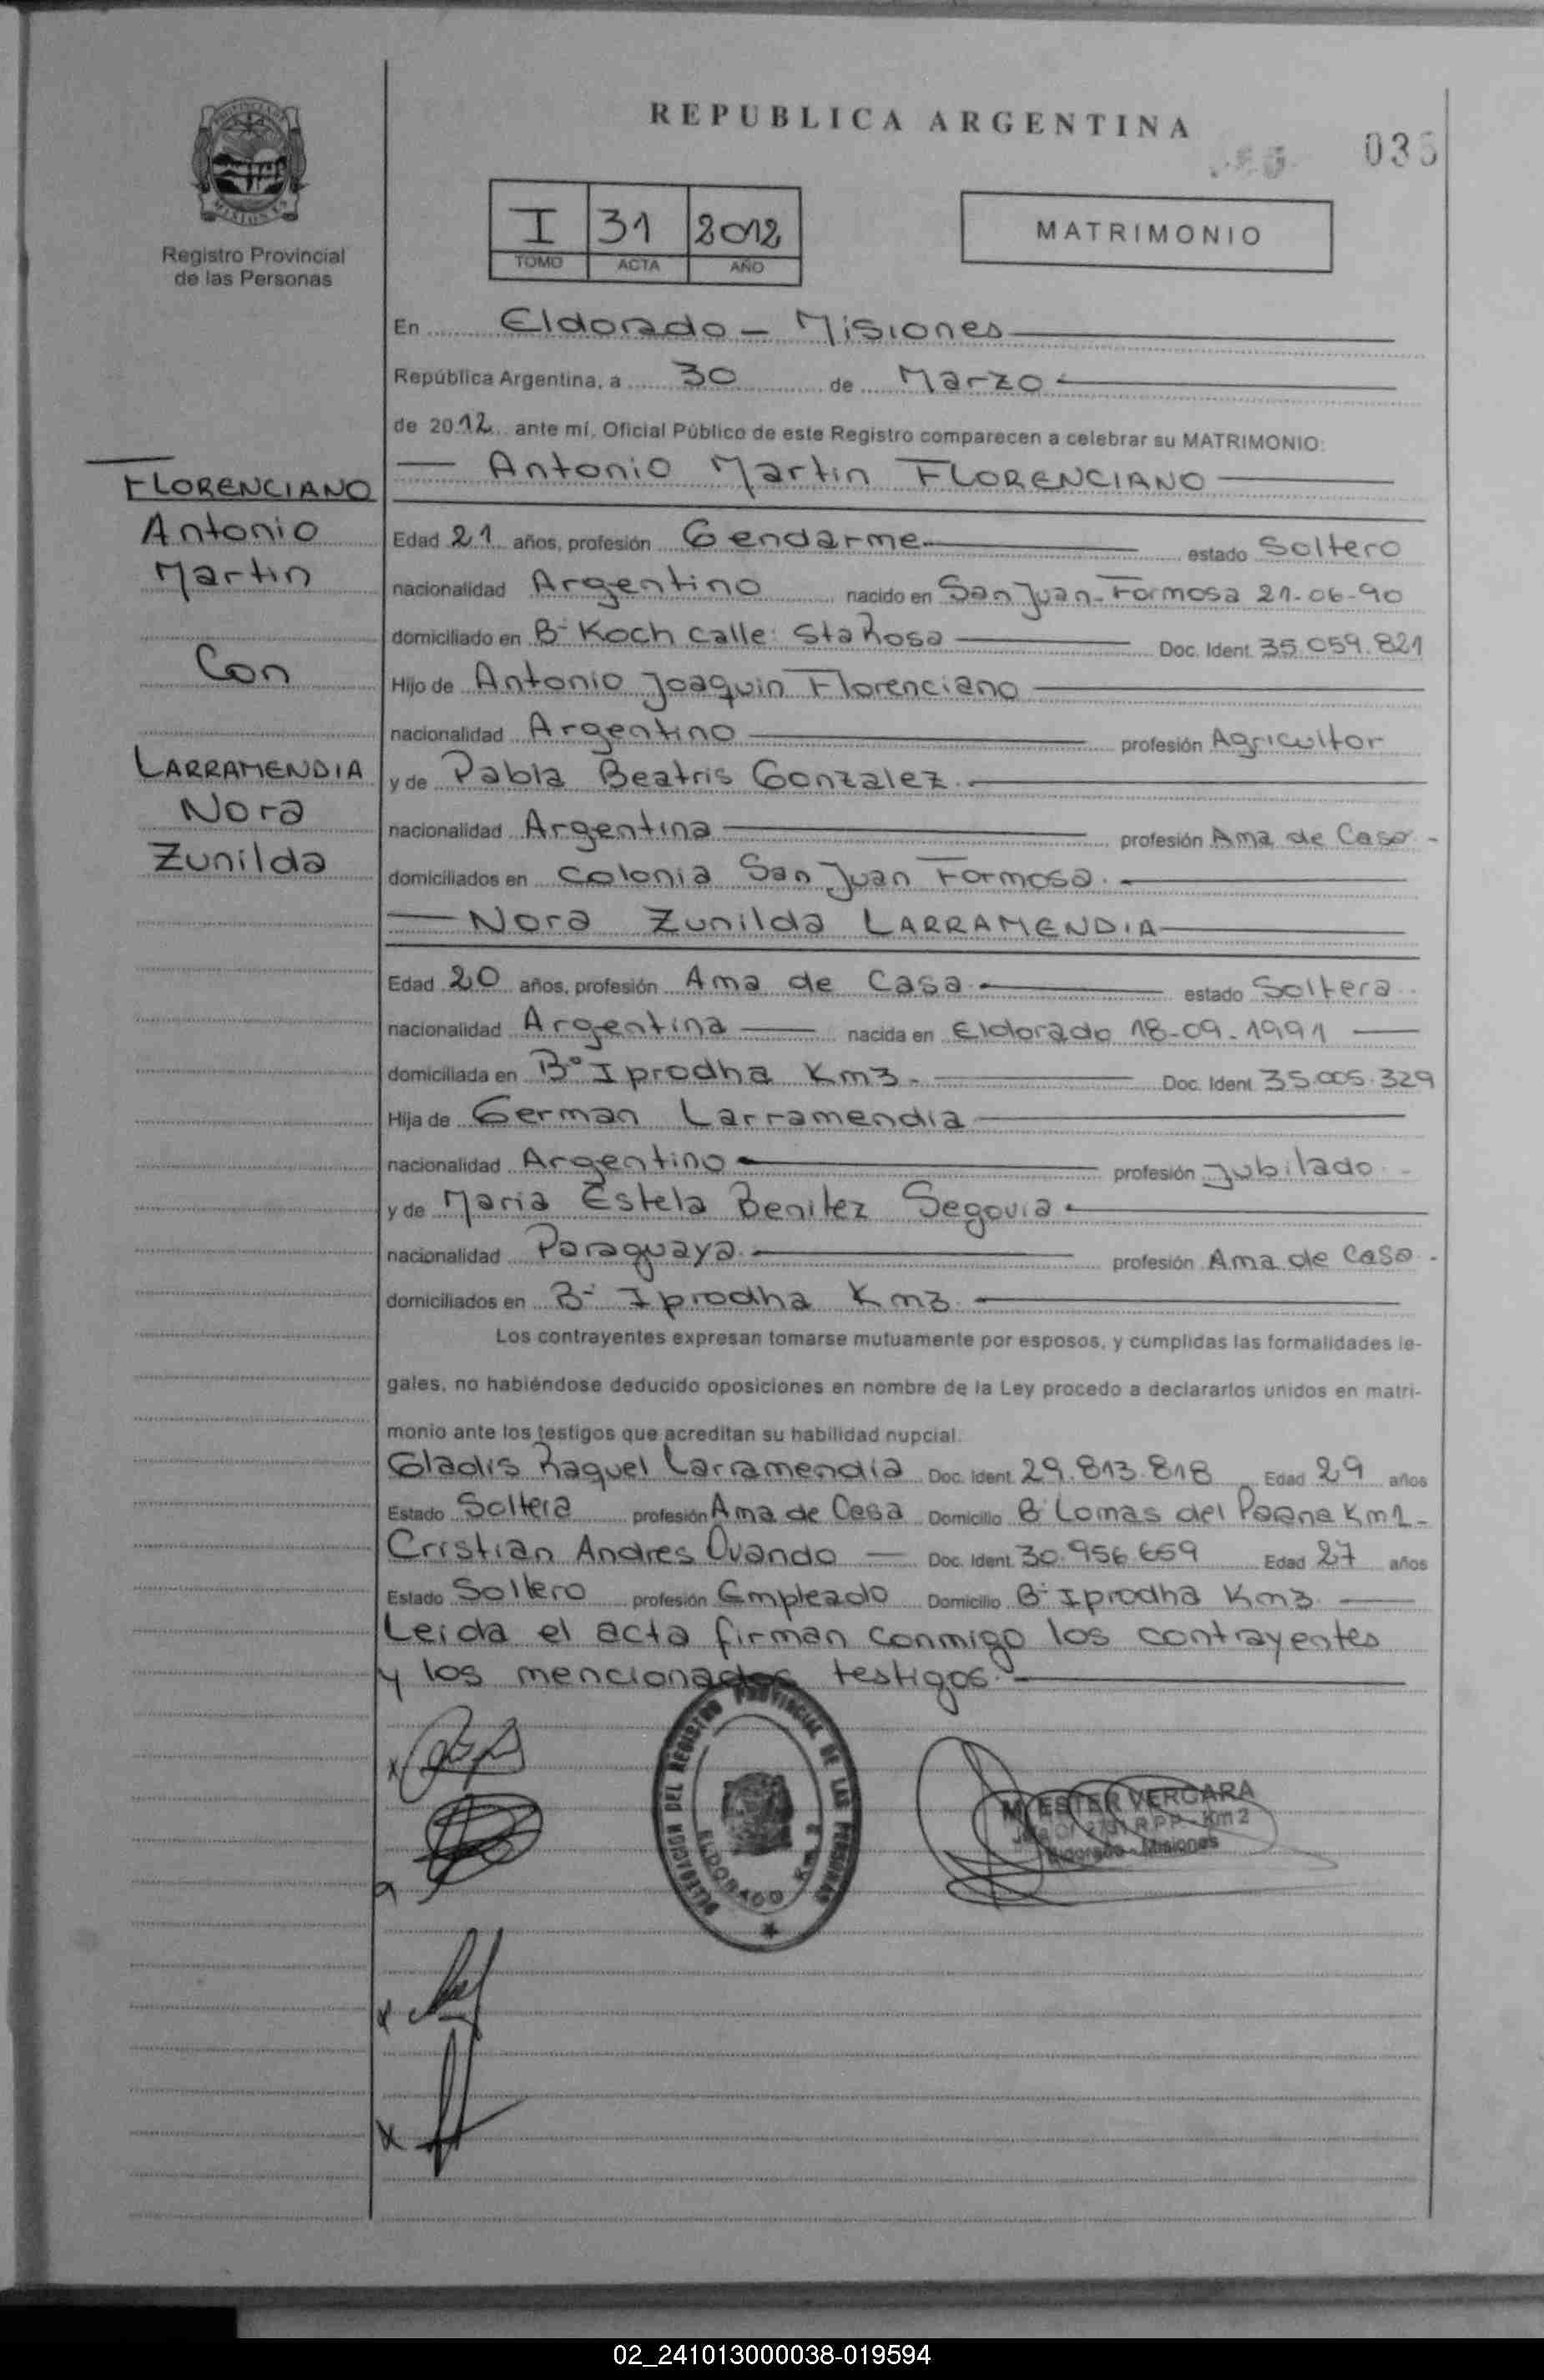 REPUBLICA ARGENTINA
036
Registro Provincial
de las Personas
I 31 2012
TOMO ACTA AÑO
MATRIMONIO
En Eldorado - Misiones
República Argentina, a 30 de Marzo
de 2012 ante mí, Oficial Público de este Registro comparecen a celebrar su MATRIMONIO:
Antonio Martin FLORENCIANO
FLORENCIANO
Antonio
Martin
Con
LARRAMENDIA
Nora
Zunilda
Edad 21 años, profesión Gendarme estado Soltero
nacionalidad Argentino nacido en San Juan - Formosa 21-06-90
domiciliado en B- Koch calle: Sta Rosa Doc. Ident. 35.059.821
Hijo de Antonio Joaquin Florenciano
nacionalidad Argentino profesión Agricultor
y de Pabla Beatris Gonzalez.
nacionalidad Argentina profesión Ama de Casa -
domiciliados en Colonia San Juan Formosa.
Nora Zunilda LARRAMENDIA
Edad 20 años, profesión Ama de Casa. estado Soltera.
nacionalidad Argentina nacida en Eldorado 18-09-1991
domiciliada en B° Iprodha Km3. Doc. Ident. 35.005.329
Hija de German Larramendia
nacionalidad Argentino profesión Jubilado
y de Maria Estela Benitez Segovia
nacionalidad Paraguaya. profesión Ama de Casa -
domiciliados en B- Iprodha Km3.
Los contrayentes expresan tomarse mutuamente por esposos, y cumplidas las formalidades le-
gales, no habiéndose deducido oposiciones en nombre de la Ley procedo a declararlos unidos en matri-
monio ante los testigos que acreditan su habilidad nupcial.
Gladis Raquel Larramendia Doc. Ident. 29.813.818 Edad 29 años
Estado Soltera profesión Ama de Casa Domicilio B- Lomas del Parana Km2-
Cristian Andres Ovando Doc. Ident. 30.956.659 Edad 27 años
Estado Soltero profesión Empleado Domicilio B- Iprodha Km3.
Leida el acta firman conmigo los contrayentes
y los mencionados testigos.
DELEGACION DEL REGISTRO PROVINCIAL DE LAS PERSONAS
ELDORADO Km 2
M. ESTER VERGARA
R.P.P. - Km 2
Eldorado - Misiones
02_241013000038-019594